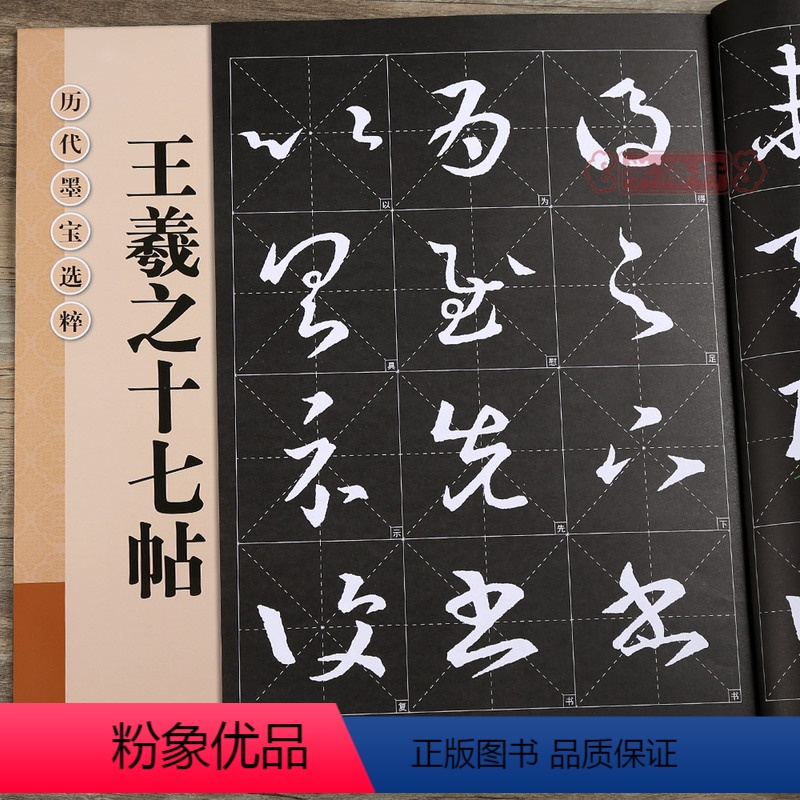 历代墨宝选粹
王羲之十七帖
以 为 得
具 慰 足
示 先 下
复 书 书
粉象优品
正版图书 品质保证